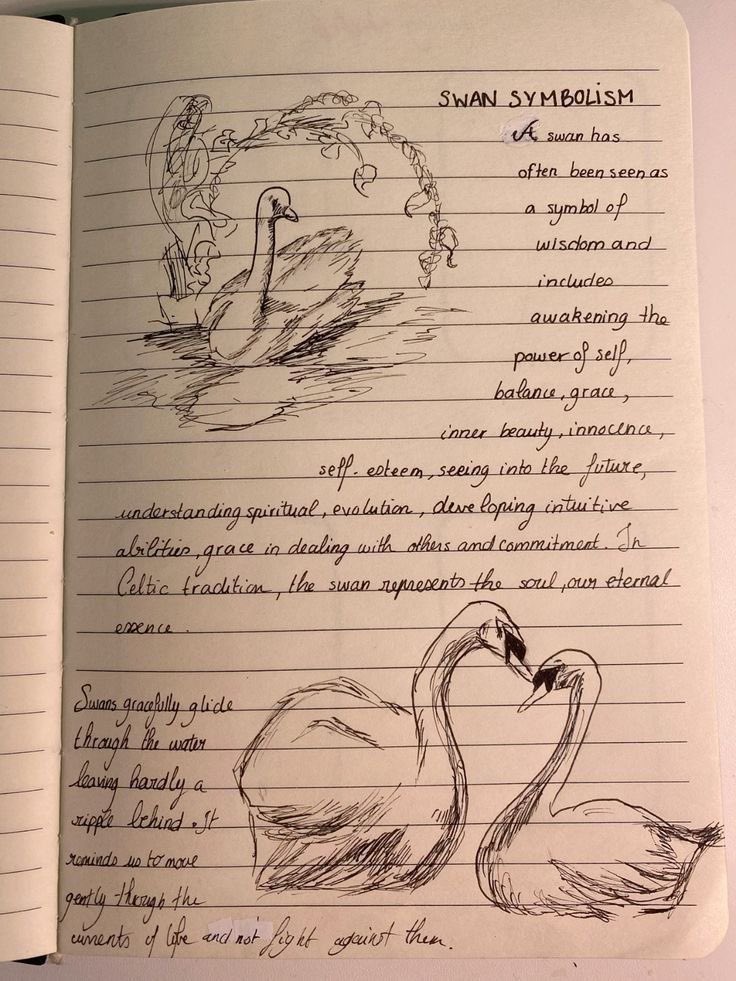 SWAN SYMBOLISM
A swan has
often been seen as
a symbol of
wisdom and
includes
awakening the
power of self,
balance, grace,
inner beauty, innocence,
self-esteem, seeing into the future,
understanding spiritual, evolution, developing intuitive
abilities, grace in dealing with others and commitment. In
Celtic tradition, the swan represents the soul, our eternal
essence.
Swans gracefully glide
through the water
leaving hardly a
ripple behind. It
reminds us to move
gently through the
currents of life and not fight against them.